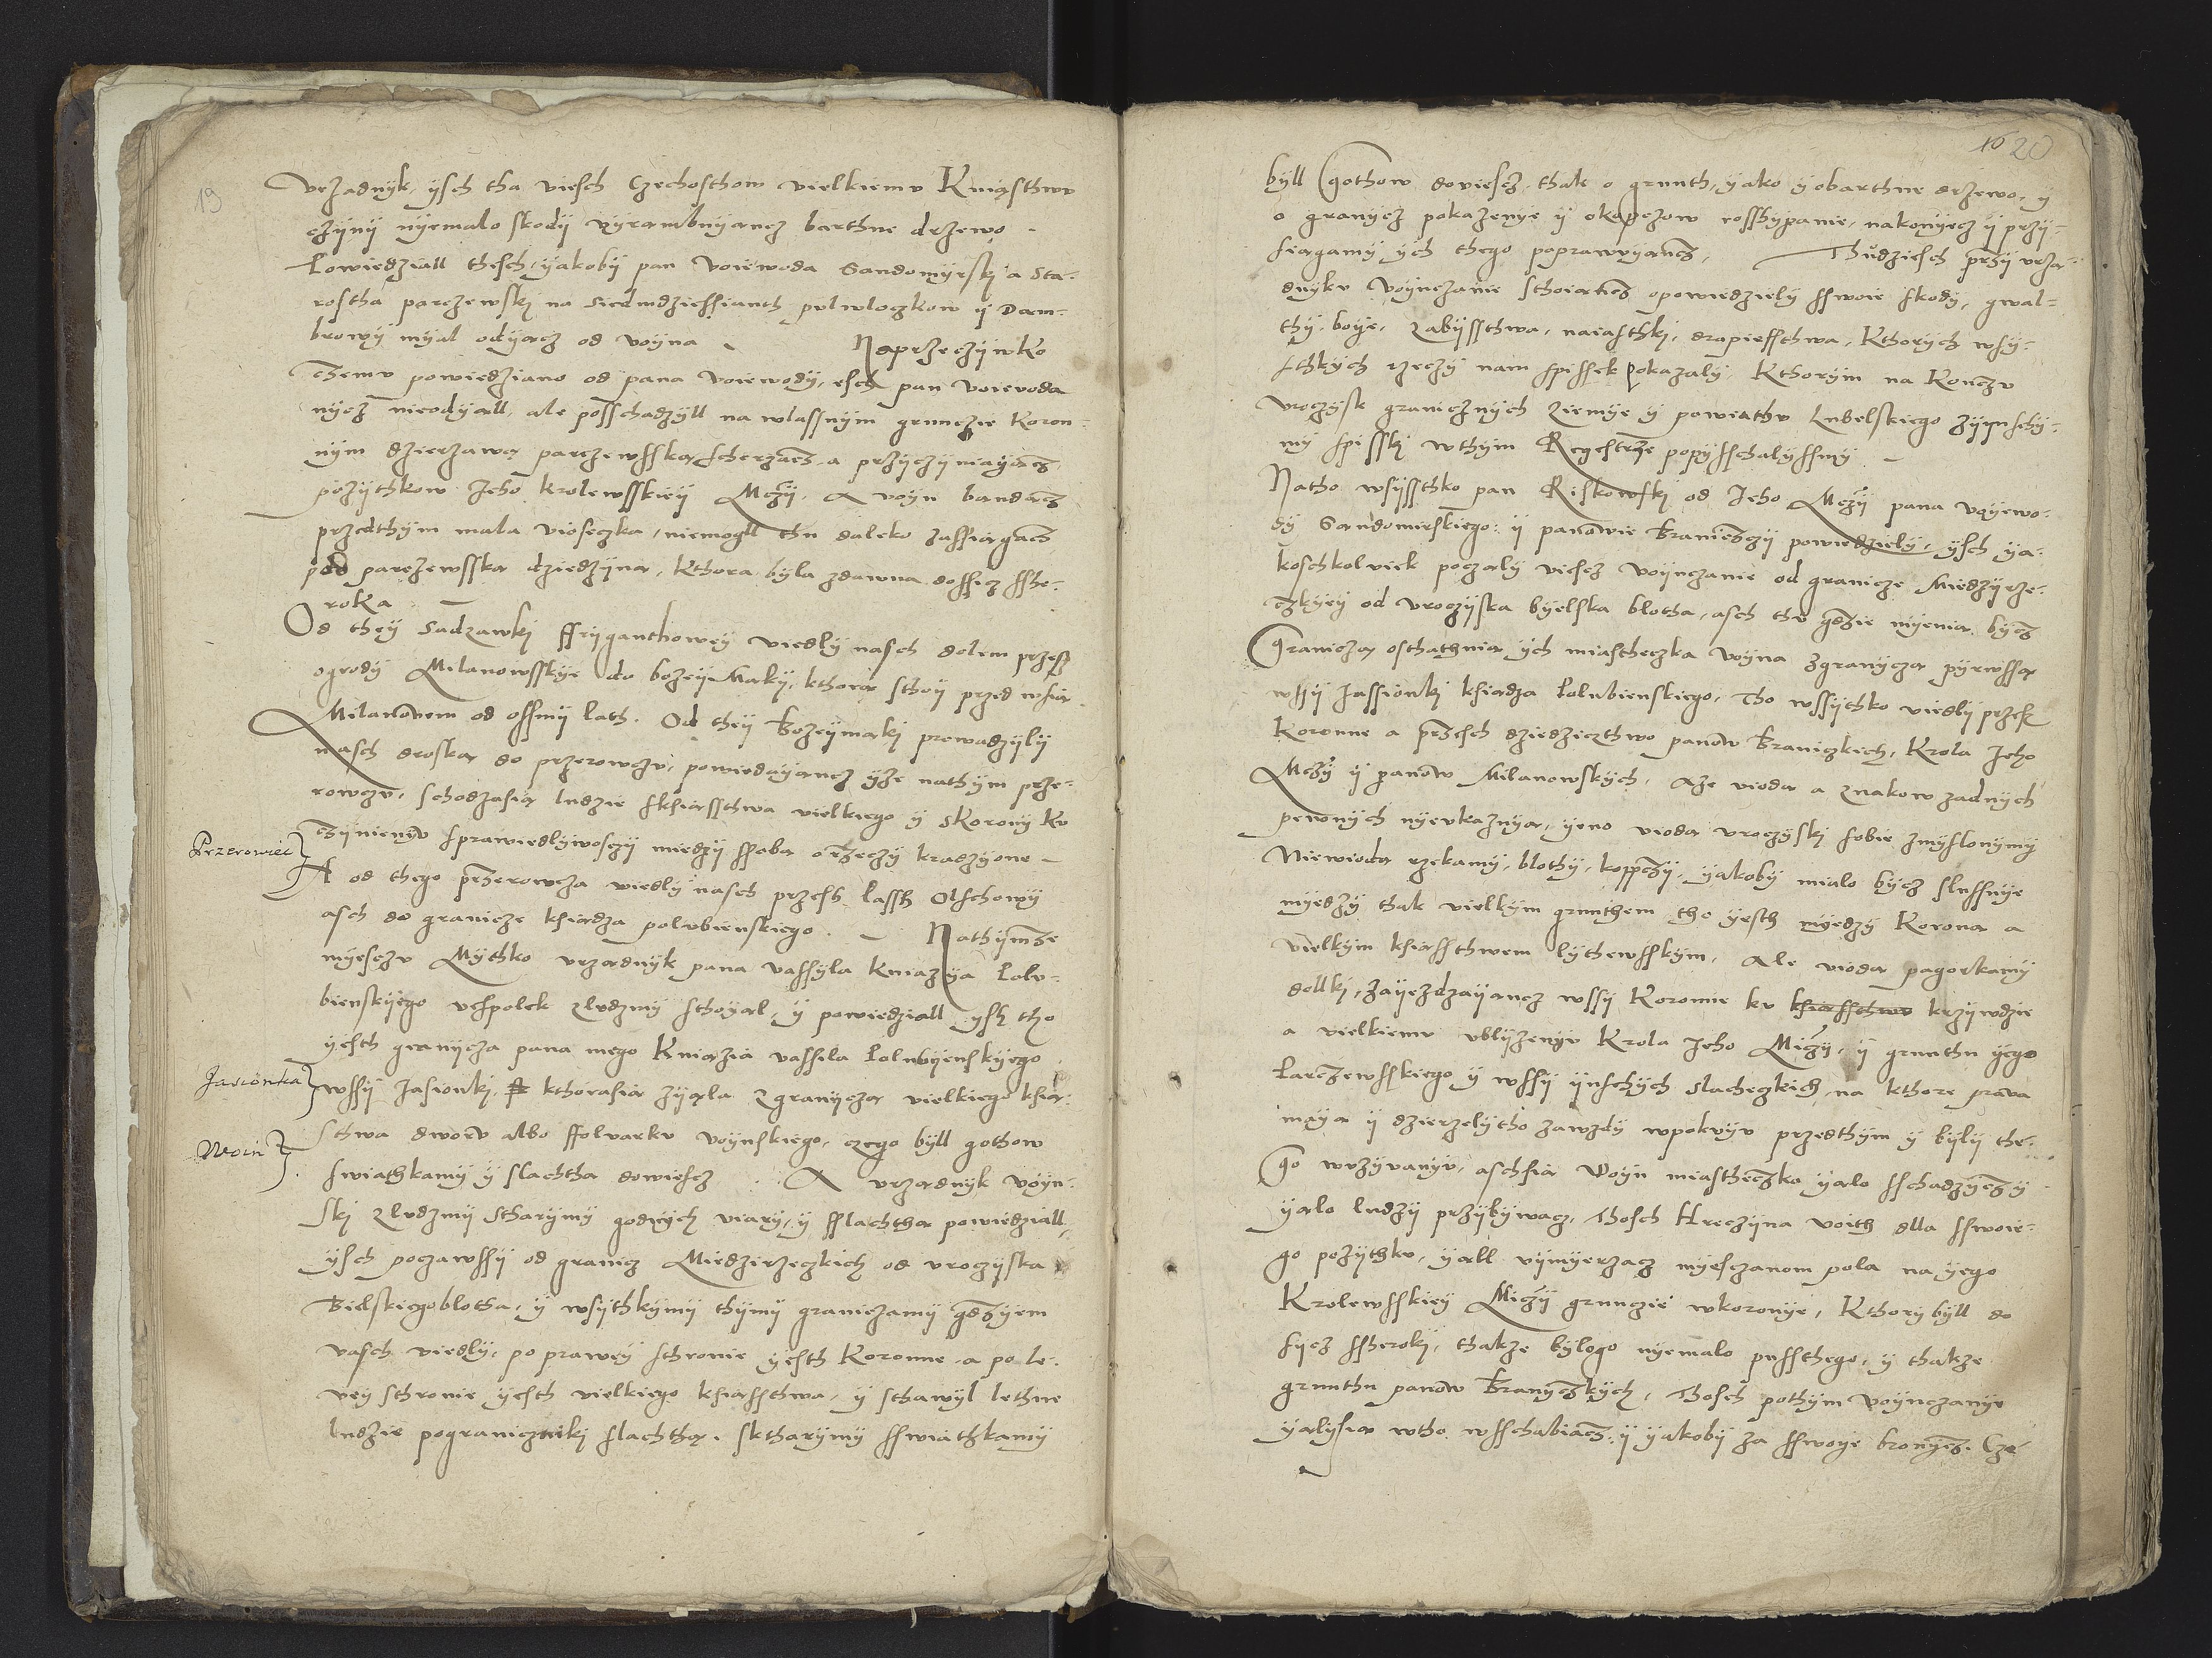 19
vrzadnyk, ysch tha viesch Czechosthow vielkiemv Kniąsthwv
czyny nyemalo skody vyrambnyancz barthne drzewo.
Powiedziall thesch, yakoby pan Voiewoda Sandomyrsky a Sta-
rostha parczewsky na siedmdziessianth pulwloczkow y Dam-
browy myal odyącz od voyna – Naprzeczywko
czemv powiedziano od pana voiewody, esch pan voievoda
nycz nieodyall, ale posschadzyll na wlassnym gruncie Koron-
nym dzierzawą parczewsską scherzącz a przyczyniayącz
pozythkow Jeho krolewsskiey Mczy. A voyn bandącz
przedthym mala vioseczka, niemogll thu daleko zassiągacz
pod parczewsską dziedzyną, kthora byla zdawna dossicz sshe-
roka
Od they sadzawky ffryganthowey viedly nasch dolem przesz
ogrody Milanowsskye do bozey Maky, kthorą sthoy przed wsią
Milanowem od ossmy lath. Od they Bozeymaky prowadzyly
nasch droską do przerowczv, powiedayancz yze nathym prze-
rowczv, schodzasią ludzie sksiąsthwa vielkiego y skorony kv
czynieniv sprawiedlywosczy miedzy ssobą o rzeczy kradzyone –
Przerowiec
A od thego przerowcza viedly nasch przesh lassh Olschowy
asch do granicze ksiądza polubienskiego. – Nathymze
myesczv Mythko vrzadnyk pana vassyla kniazya Polv-
bienskyego vespolek zludzmy sthoyal, y powiedziall ysh tho
yesth granycza pana mego Kniazia vassila Polubyenskyego
Jasionka
wssy Jasionky, kthorasią zyąla zgranyczą vielkiego ksią-
Woin
sthwa dworv albo ffolvarkv voynskiego, czego byll gothow
swiathkamy y slachtha dowiescz. A vrzadnyk voyn-
sky zludzmy stharymy godnych viary, y sslachtha powiedziall,
ysch poczawssy od granicz Miedzirzeczkich od vroczyska
Bielskiegoblotha, y wsythkymy thymy graniczamy gdzyem
vasch viedly, po prawey sthronie yesth Koronne a po le-
vey sthronie yesth vielkiego ksiassthwa, y sthawyl lethne
ludzie pograniczniky slachthą. stharymy sswiathkamy
16 20
byll gothow doviescz, thak o grunth, yako y obarthne drzewo, y
o granycz pokazenye y okopczow rosshypanie, nakonyecz y przy-
siagamy ych thego poprawuyancz, Thudziesch przy vrza-
dnykv voynczanie sthoiancz opowiedziely sswoie skody, gwal-
thy, boye, zabyssthwa, naiasthky, drapiessthwa, Kthorych wsy-
sthkych rzeczy nam spissek pokazaly Kthorym na Konczv
vroczysk granicznych Ziemye y powiathv Lubelskiego zyynschy-
my spissky wthym Regestrze popysschalyssmy –
Natho wsyssthko pan Riskowsky od Jeho Mczy pana voyewo-
dy Sandomirskiego: y panowie Braniczczy powiedziely, ysch ya-
koschkolviek poczaly viescz voynczanie od granicze Miedzyrze-
czkyey od vroczyska byelska blotha, asch thv gdzie myenią bycz
Graniczą osthathnią ych miastheczka voyna zgranyczą pyrwssą
wssy Jassionky ksiadza Polubienskiego, Tho wssythko viedly przesz
Koronne a przesch dziedzicthwo panow Braniczkich, Krola Jeho
Mczy y panow Milanowskych. Aze viodą a znakow zadnych
pewnych nyevkaznya, yeno viodą vroczysky sobie zmyslonymy
Niewiodą rzekamy, blothy, kopczy, yakoby mialo bycz slussnye
myedzy thak vielkym grunthem tho yesth myedzy Koroną a
vielkym ksiassthwem lythewsskym. Ale viodą pagorkamy
dollky, zayezdzayancz wssy Koronnie kv ksiassthwv krzywdzie
a vielkiemv vblyzenyv Krola Jeho Miczy, y grunthu yego
Parczewsskiego y wssy ynschych slacheczkich, na kthore prawa
maya y dzierzelytho zawzdy wpokoyv przedthym y byly the-
go wzyvanyv, aschsią Woyn miastheczko yalo sschadzycz y
yalo ludzy przybywacz, Thosch Hreczyna voith dlla sswoie-
go pozythkv, yall vymyerzacz myesczanom pola na yego
Krolewsskiey Miczy grunczie wkoronye, Kthory byll do
sycz ssheroky, thakze bylogo nyemalo pussthego, y thakze
grunthu panow Branyczkych, Thosch pothym voynczanye
yalysią wtho wsschabiacz y yakoby za sswoye bronycz. Cze